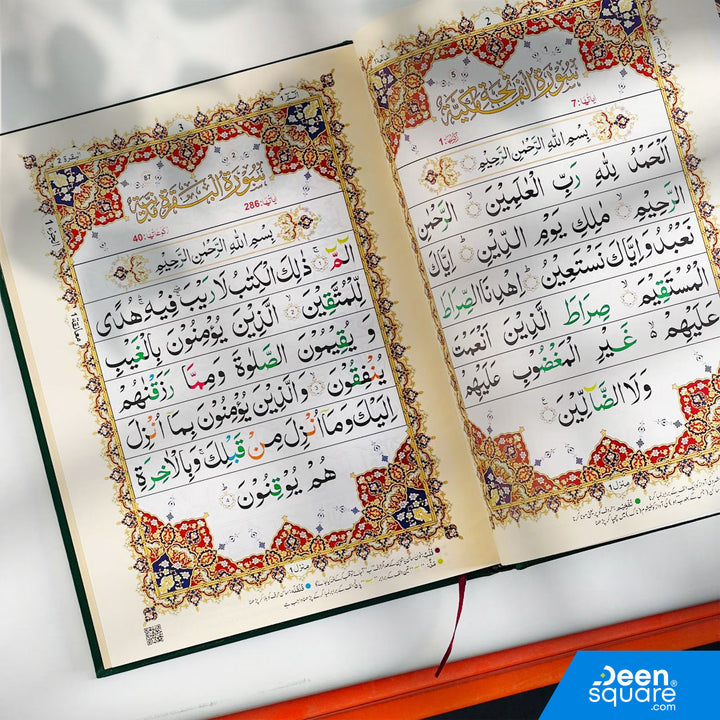 2
1
5
سُوْرَةُ الْفَاتِحَةِ مَكِّيَّةٌ
اٰیاتها:7
رکوعها:1
بِسْمِ اللهِ الرَّحْمٰنِ الرَّحِيْمِ
اَلْحَمْدُ لِلّٰهِ رَبِّ الْعٰلَمِيْنَ ۙ الرَّحْمٰنِ
الرَّحِيْمِ ۙ مٰلِكِ يَوْمِ الدِّيْنِ ؕ اِيَّاكَ
نَعْبُدُ وَ اِيَّاكَ نَسْتَعِيْنُ ؕ اِهْدِنَا الصِّرَاطَ
الْمُسْتَقِيْمَ ۙ صِرَاطَ الَّذِيْنَ اَنْعَمْتَ
عَلَيْهِمْ ۙ غَيْرِ الْمَغْضُوْبِ عَلَيْهِمْ
وَلَا الضَّآلِّيْنَ
منزل ١
3
2
87
سُوْرَةُ الْبَقَرَةِ مَدَنِيَّةٌ
اٰیاتها:286
رکوعاتها:40
بِسْمِ اللهِ الرَّحْمٰنِ الرَّحِيْمِ
الٓمّٓ ۚ ذٰلِكَ الْكِتٰبُ لَا رَيْبَ ۛ فِيْهِ ۛ هُدًى
لِّلْمُتَّقِيْنَ ۙ الَّذِيْنَ يُؤْمِنُوْنَ بِالْغَيْبِ
وَ يُقِيْمُوْنَ الصَّلٰوةَ وَ مِمَّا رَزَقْنٰهُمْ
يُنْفِقُوْنَ ۙ وَ الَّذِيْنَ يُؤْمِنُوْنَ بِمَاۤ اُنْزِلَ
اِلَيْكَ وَ مَاۤ اُنْزِلَ مِنْ قَبْلِكَ ۚ وَ بِالْاٰخِرَةِ
هُمْ يُوْقِنُوْنَ
منزل ١
Deen
square®
.com